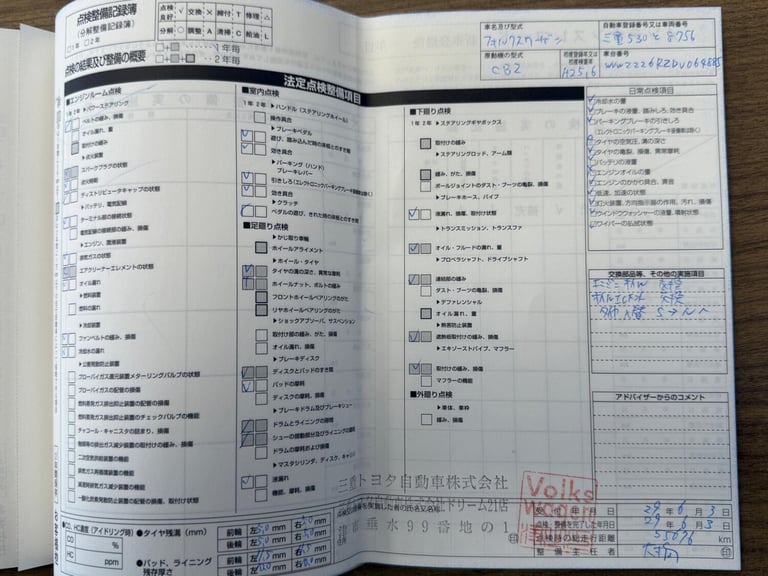 点検整備記録簿
(分解整備記録簿)
□1年 □2年
点検良好 ✓ 交換 × 締付 T 修理 △
分解 ○ 調整 A 清掃 C 給油 L
1年毎
2年毎
点検の結果及び整備の概要
法定点検整備項目
車名及び型式
フォルクスワーゲン
原動機の型式
CBZ
初度登録年月
H25,6
自動車登録番号又は車両番号
三重530と8756
車台番号
■エンジンルーム点検
1年 2年
▶パワーステアリング
ベルトの緩み、損傷
オイル漏れ、量
取付の緩み
▶点火装置
スパークプラグの状態
点火時期
ディストリビュータキャップの状態
▶バッテリ、電気配線
ターミナル部の接続状態
電気配線の接続部の緩み、損傷
▶エンジン、潤滑装置
排気ガスの状態
エアクリーナーエレメントの状態
オイル漏れ
▶燃料装置
燃料の漏れ
▶冷却装置
ファンベルトの緩み、損傷
冷却水の漏れ
▶公害発散防止装置
ブローバイガス還元装置メターリングバルブの状態
ブローバイガスの配管の損傷
燃料蒸発ガス排出抑止装置の配管の損傷
燃料蒸発ガス排出抑止装置のチェックバルブの機能
チャコール・キャニスタの詰まり、損傷
二次空気供給装置の機能
排気ガス再循環装置の機能
減速時排気ガス減少装置の機能
一酸化炭素等発散防止装置の配管の損傷、取付状態
■室内点検
1年 2年
▶ハンドル(ステアリングホイール)
操作具合
▶ブレーキペダル
遊び、踏み込んだ時の床板とのすき間
効き具合
▶パーキング(ハンド)
ブレーキレバー
引きしろ(エレクトロニックパーキングブレーキ装着車は除く)
効き具合
▶クラッチ
ペダルの遊び、きれた時の床板とのすき間
■足廻り点検
▶かじ取り車輪
ホイールアライメント
▶ホイール・タイヤ
タイヤの溝の深さ、異常な摩耗
ホイールナット、ボルトの緩み
フロントホイールベアリングのがた
リヤホイールベアリングのがた
▶ショックアブソーバ、サスペンション
取付け部の緩み、がた、損傷
オイル漏れ、損傷
▶ブレーキディスク
ディスクとパッドのすき間
パッドの摩耗
ディスクの摩耗、損傷
▶ブレーキドラム及びブレーキシュー
ドラムとライニングの隙間
シューの摺動部分及びライニングの摩耗
ドラムの摩耗および損傷
▶マスタシリンダ、ディスク、キャリパ
液漏れ
機能、摩耗、損傷
■下廻り点検
1年 2年
▶ステアリングギヤボックス
取付けの緩み
▶ステアリングロッド、アーム類
緩み、がた、損傷
ボールジョイントのダスト・ブーツの亀裂、損傷
▶ブレーキホース、パイプ
液漏れ、損傷、取付け状態
▶トランスミッション、トランスファ
オイル・フルードの漏れ、量
▶プロペラシャフト、ドライブシャフト
連結部の緩み
ダスト・ブーツの亀裂、損傷
▶デファレンシャル
オイル漏れ、量
▶熱害防止装置
遮熱板取付けの緩み、損傷
▶エキゾーストパイプ、マフラー
取付けの緩み、損傷
マフラーの機能
■外廻り点検
▶車体、車枠
緩み、損傷
日常点検項目
冷却水の量
ブレーキの液量、踏みしろ、効き具合
パーキングブレーキの引きしろ
(エレクトロニックパーキングブレーキ装着車は除く)
タイヤの空気圧、溝の深さ
タイヤの亀裂、損傷、異常摩耗
バッテリの液量
エンジンオイルの量
エンジンのかかり具合、異音
低速、加速の状態
灯火装置、方向指示器の作用、汚れ、損傷
ウインドウウォッシャーの液量、噴射状態
ワイパーの払拭状態
交換部品等、その他の実施項目
エンジンオイル 交換
オイルエレメント 交換
タイヤ入替 S→N
アドバイザーからのコメント
■CO、HC濃度(アイドリング時)
CO %
HC ppm
●タイヤ残溝(mm)
前輪 左5.0mm 右5.0mm
後輪
●パッド、ライニング
残存厚さ
前輪
後輪
三重トヨタ自動車株式会社
ドリーム21店
津市垂水99番地の1
Volks
Wagen
受付年月日 29年6月3日
点検、整備を完了した年月日 29年6月3日
点検時の総走行距離 55096 km
整備主任者